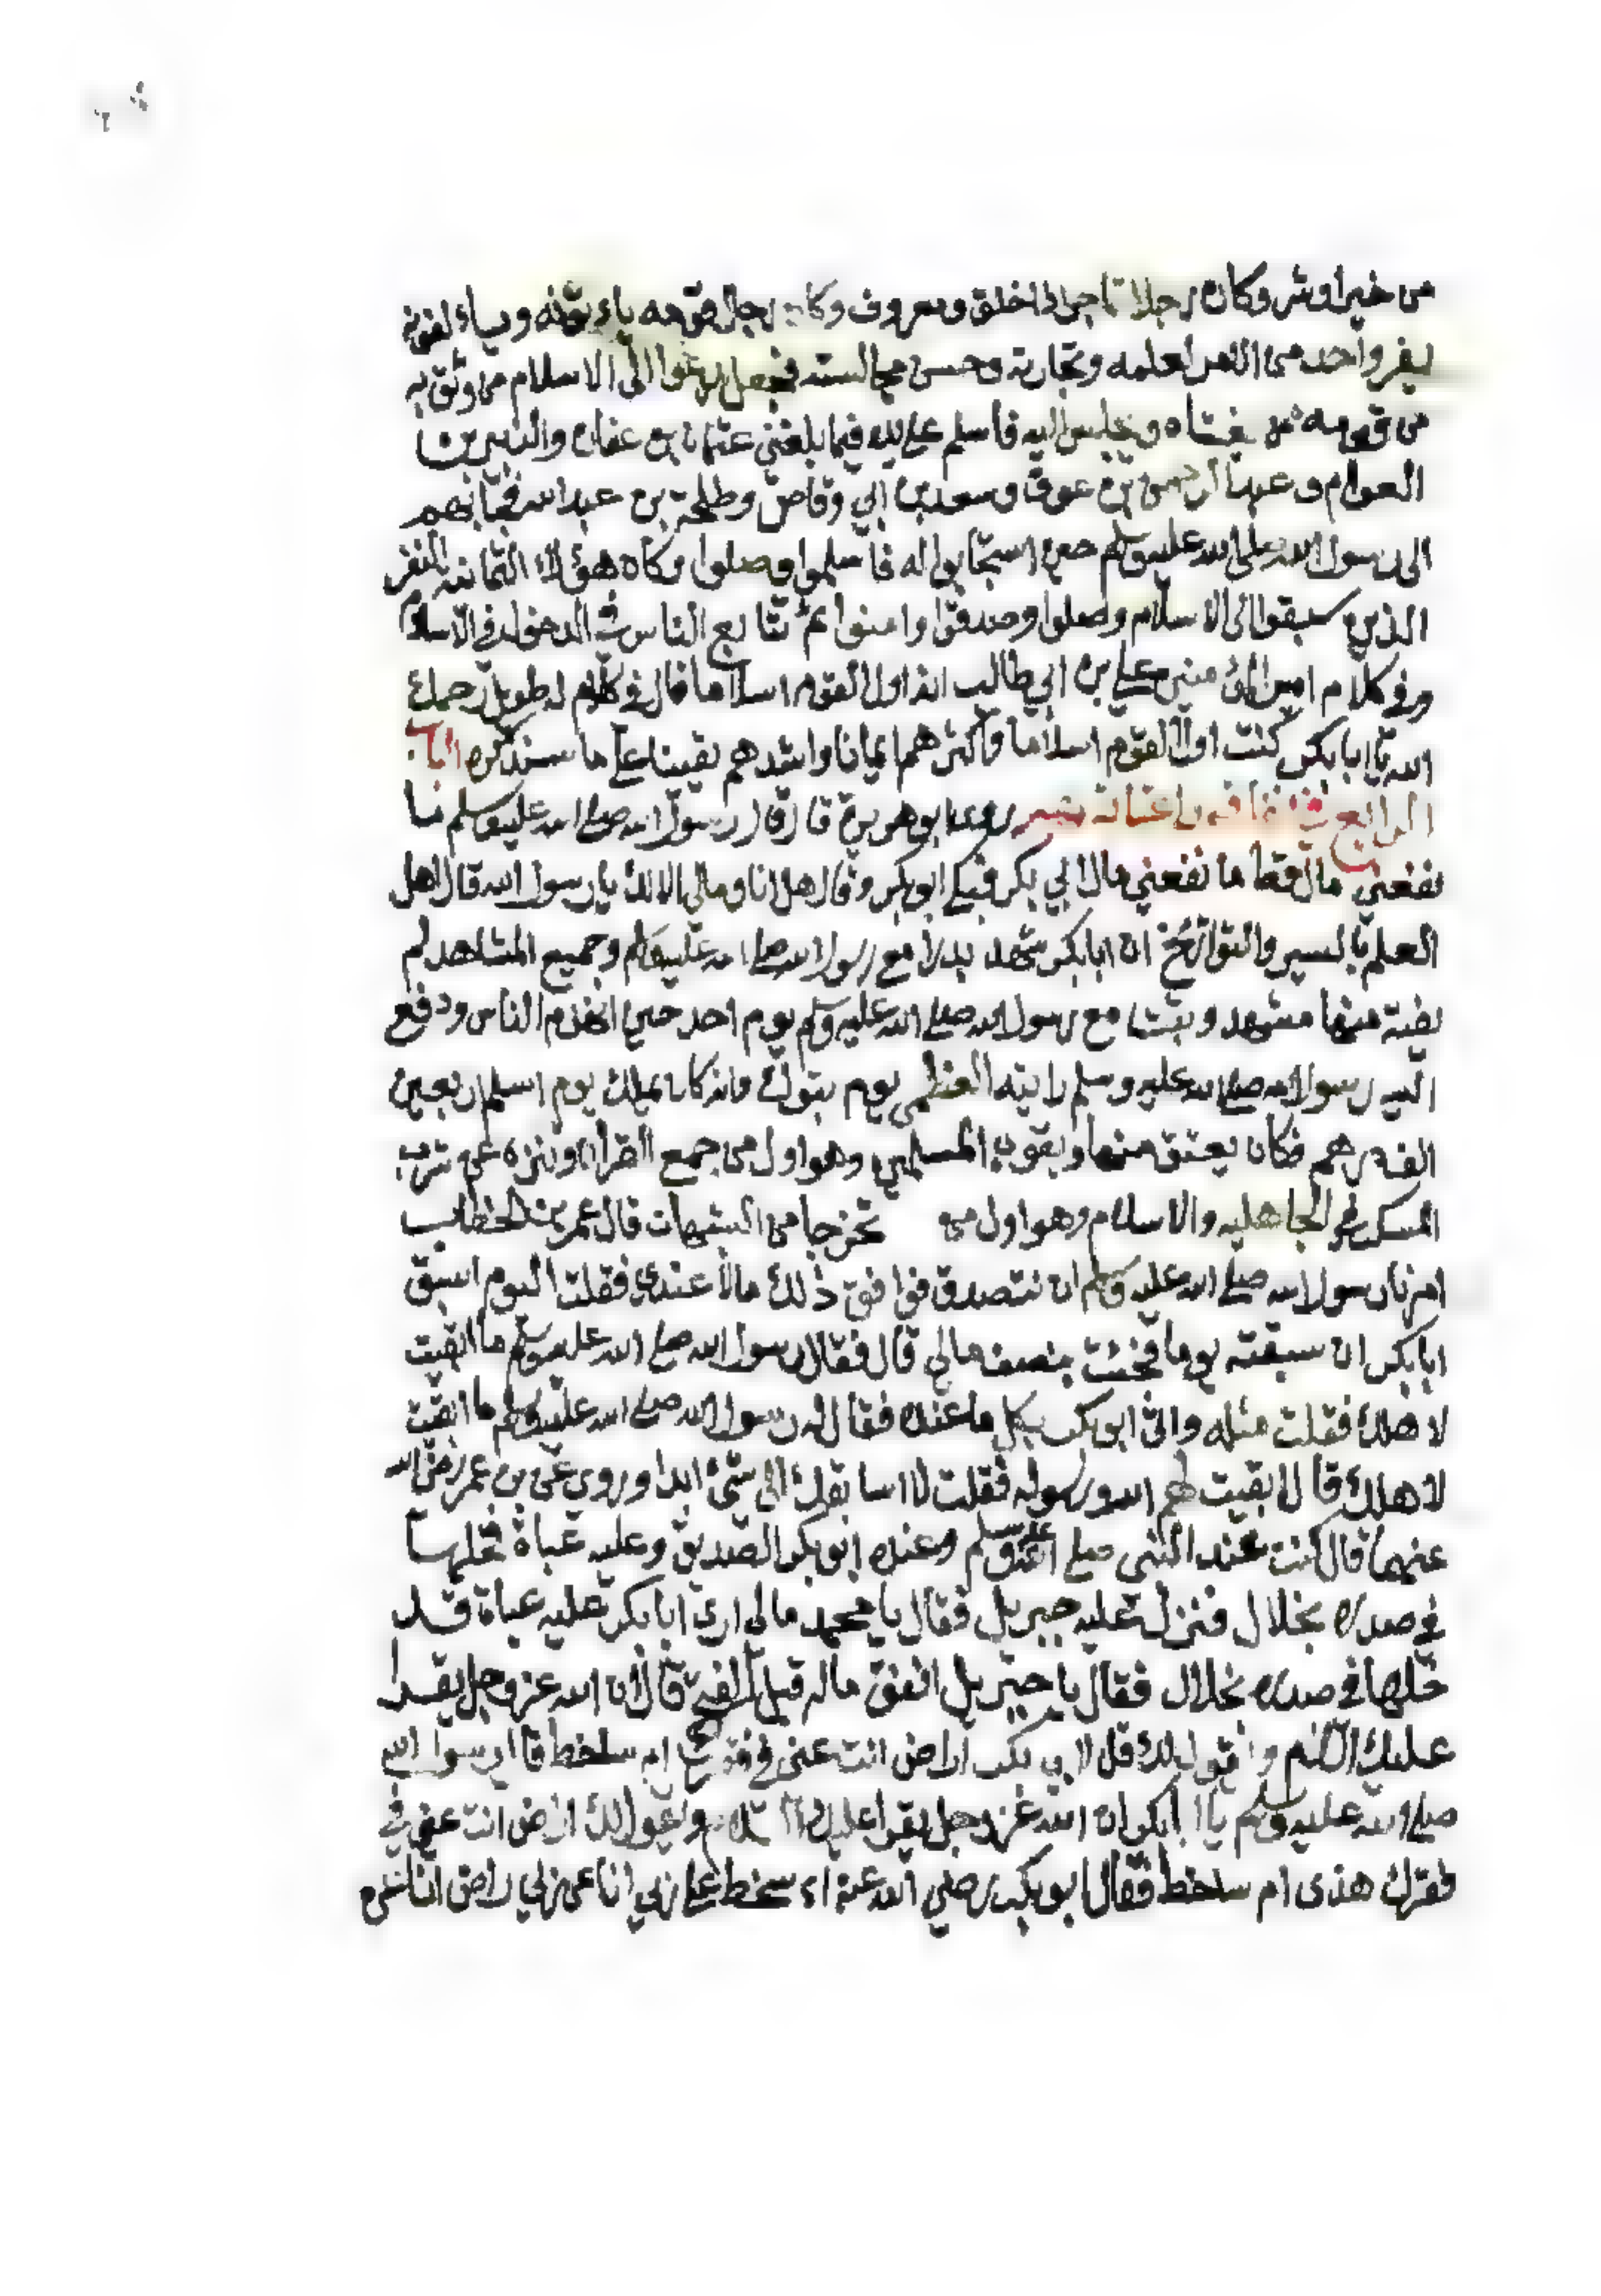 من خير او شر وكان رجلا تاجرا ذا خلق ومعروف وكان رجال قومه ياء توﻧﻪ وياء لفونه
لغير واحد من الامر لعلمه وتجارته وحسن مجالسته فجعل يدعوا الى الاسلام من وثق به
من قومه من يغشاه ويجلس اليه فاسلم على يديه فيما بلغني عثمان بن عفان والزبير بن
العوام وعبد الرحمن بن عوف وسعد بن ابي وقاص وطلحة بن عبد الله فجأ بهم
الى رسول الله صلى الله عليه وسلم حين استجابوا له فاسلموا وصلوا وكان هؤلاء الثمانية النفر
الذين سبقوا الى الاسلام وصلوا وصدقوا وامنوا ثم تتابع الناس في الدخول في الاسلام
وفي كلام امير المؤمنين علي بن ابي طالب انه اول القوم اسلاما قال في كلام له طويل رحمك
الله يا ابا بكر كنت اول القوم اسلاما واكثرهم ايمانا واشدهم يقينا على ما سنذكره الباب
الرابع في روى ابو هريرة قال قال رسول الله صلى الله عليه وسلم ما
نفعني مال قط ما نفعني مال ابي بكر فبكى ابو بكر وقال هل انا ومالي الا لك يا رسول الله قال اهل
العلم بالسير والتواريخ ان ابا بكر شهد بدرا مع رسول الله صلى الله عليه وسلم وجميع المشاهد لم
يفته منها مشهد وثبت مع رسول الله صلى الله عليه وسلم يوم احد حين انهزم الناس ودفع
اليه رسول الله صلى الله عليه وسلم رايته العظمى يوم تبوك وانه كان يملك يوم اسلم اربعين
الف درهم فكان يعتق منها ويقوي المسلمين وهو اول من جمع القران وتنزه عن شرب
المسكر في الجاهليه والاسلام وهو اول من تحرجا من الشبهات قال عمر بن الخطاب
امرنا رسول الله صلى الله عليه وسلم ان نتصدق فوافق ذلك مالا عندي فقلت اليوم اسبق
ابا بكر ان سبقته يوما فجئت بنصف مالي قال فقال رسول الله صلى الله عليه وسلم ما ابقيت
لاهلك فقلت مثله واتى ابو بكر بكل ما عنده فقال له رسول الله صلى الله عليه وسلم ما ابقيت
لاهلك قال ابقيت لهم الله ورسوله فقلت لا اسابقك الى شئ ابدا وروي عن بن عمر رضي الله
عنهما قال كنت عند النبي صلى الله عليه وسلم وعنده ابو بكر الصديق وعليه عباة خلها
في صدره بخلال فنزل عليه جبريل فقال يا محمد مالي ارى ابا بكر عليه عباة قد
خلها في صدره بخلال فقال يا جبريل انفق ماله قبل الفتح قال ان الله عز وجل يقرا
عليك السلم ويقول لك قل لابي بكر اراض انت عني في فقرك ام ساخط قال رسول الله
صلى الله عليه وسلم يا ابا بكر ان الله عز وجل يقرا عليك السلام ويقول لك اراض انت عني في
فقرك هذى ام ساخط فقال ابو بكر رضي الله عنه اء سخط على ربي انا عن ربي راض انا عن